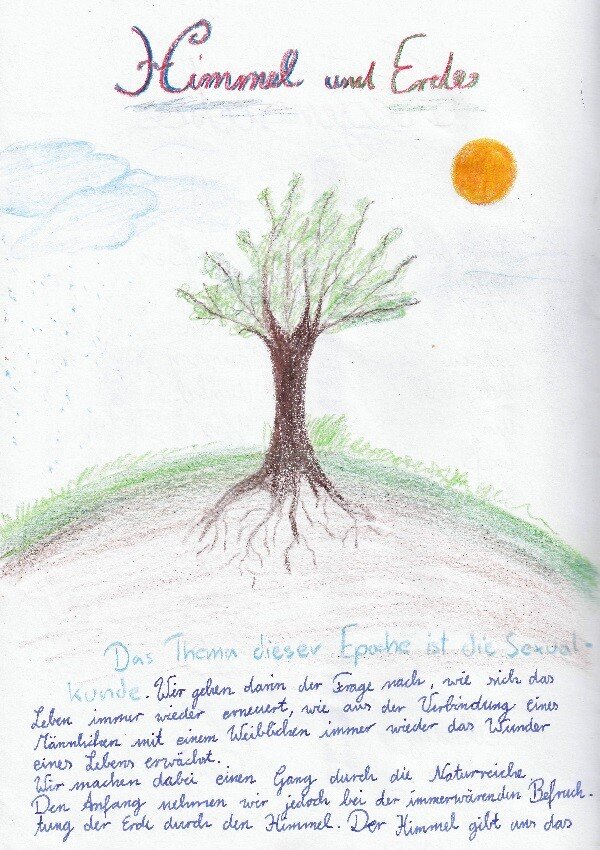 Himmel und Erde
Das Thema dieser Epoche ist die Sexual-
kunde. Wir gehen darin der Frage nach, wie sich das
Leben immer wieder erneuert, wie aus der Verbindung eines
Männlichen mit einem Weiblichen immer wieder das Wunder
eines Lebens erwächst.
Wir machen dabei einen Gang durch die Naturreiche.
Den Anfang nehmen wir jedoch bei der immerwärenden Befruch-
tung der Erde durch den Himmel. Der Himmel gibt uns das